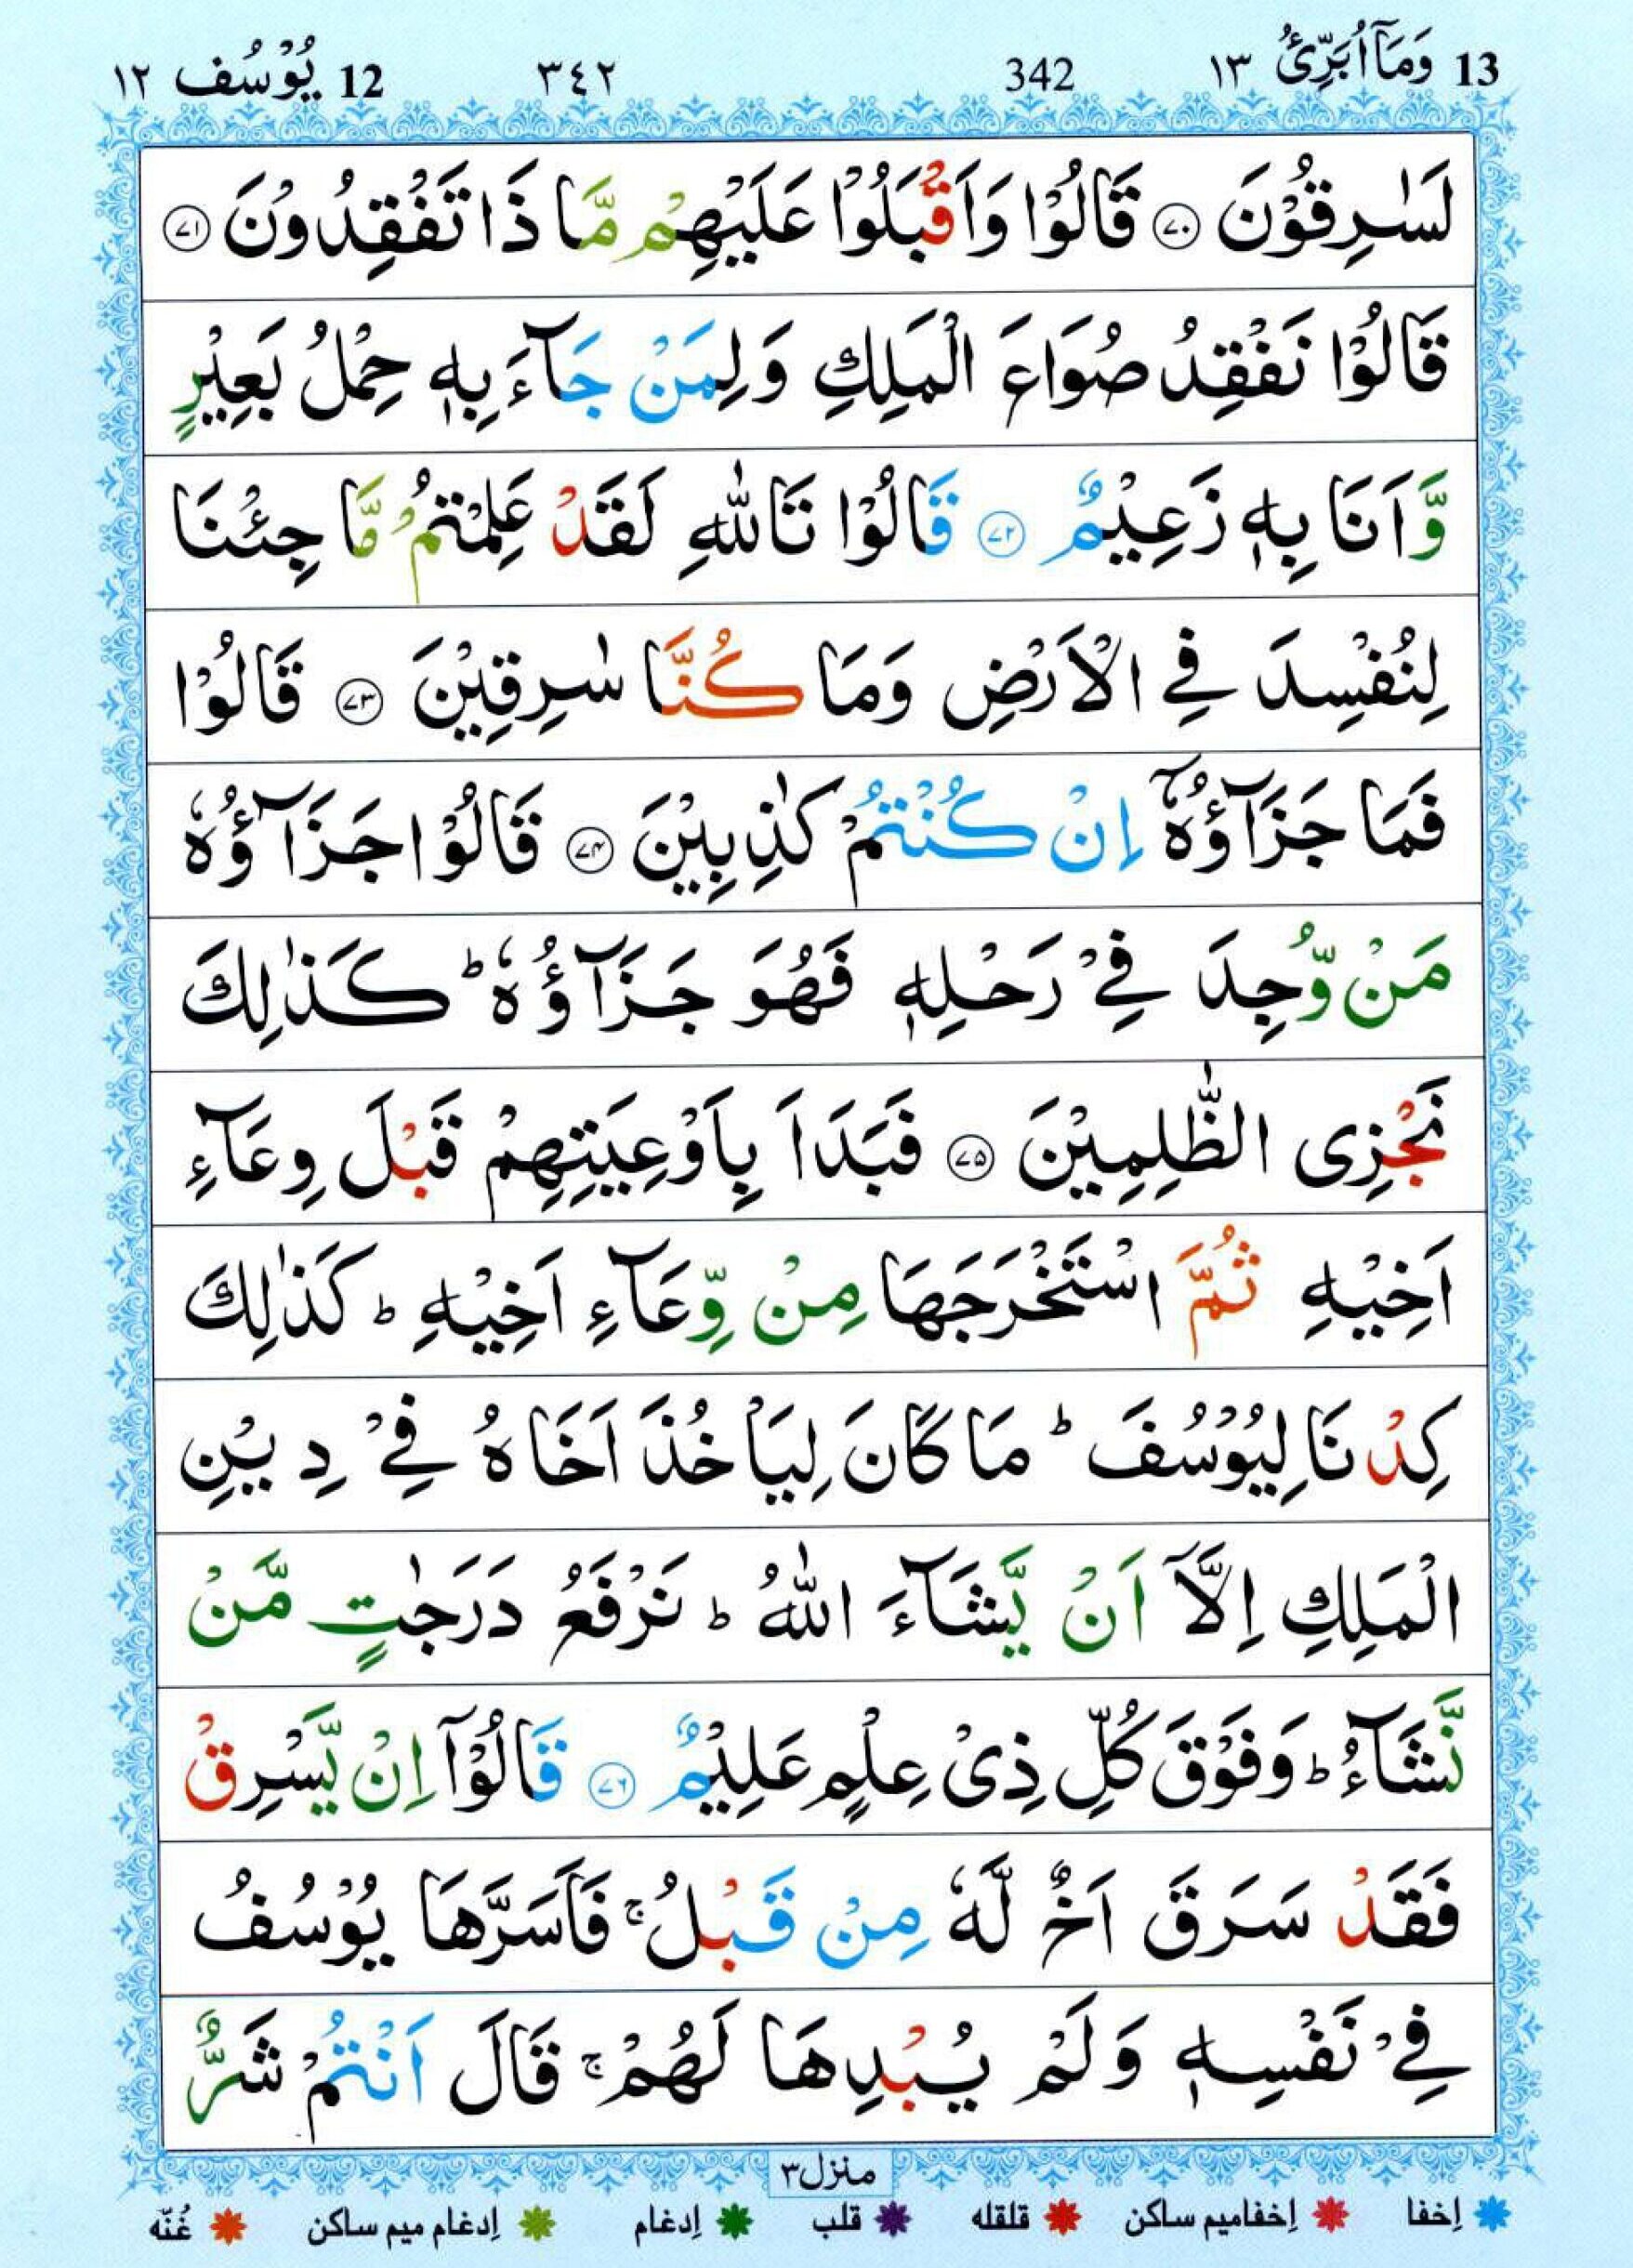 13 وَمَآ اُبَرِّئُ ١٣ 342 ٣٤٢ 12 يُوْسُف ١٢
لَسٰرِقُوْنَ ۷۰ قَالُوْا وَاَقْبَلُوْا عَلَيْهِمْ مَّا ذَا تَفْقِدُوْنَ ۷۱
قَالُوْا نَفْقِدُ صُوَاعَ الْمَلِكِ وَلِمَنْ جَآءَ بِهٖ حِمْلُ بَعِيْرٍ
وَّاَنَا بِهٖ زَعِيْمٌ ۷۲ قَالُوْا تَاللّٰهِ لَقَدْ عَلِمْتُمْ مَّا جِئْنَا
لِنُفْسِدَ فِي الْاَرْضِ وَمَا كُنَّا سٰرِقِيْنَ ۷۳ قَالُوْا
فَمَا جَزَآؤُهٗٓ اِنْ كُنْتُمْ كٰذِبِيْنَ ۷۴ قَالُوْا جَزَآؤُهٗ
مَنْ وُّجِدَ فِيْ رَحْلِهٖ فَهُوَ جَزَآؤُهٗ ؕ كَذٰلِكَ
نَجْزِى الظّٰلِمِيْنَ ۷۵ فَبَدَاَ بِاَوْعِيَتِهِمْ قَبْلَ وِعَآءِ
اَخِيْهِ ثُمَّ اسْتَخْرَجَهَا مِنْ وِّعَآءِ اَخِيْهِ ؕ كَذٰلِكَ
كِدْنَا لِيُوْسُفَ ؕ مَا كَانَ لِيَاْخُذَ اَخَاهُ فِيْ دِيْنِ
الْمَلِكِ اِلَّآ اَنْ يَّشَآءَ اللّٰهُ ؕ نَرْفَعُ دَرَجٰتٍ مَّنْ
نَّشَآءُ ؕ وَفَوْقَ كُلِّ ذِيْ عِلْمٍ عَلِيْمٌ ۷۶ قَالُوْٓا اِنْ يَّسْرِقْ
فَقَدْ سَرَقَ اَخٌ لَّهٗ مِنْ قَبْلُ ۚ فَاَسَرَّهَا يُوْسُفُ
فِيْ نَفْسِهٖ وَلَمْ يُبْدِهَا لَهُمْ ۚ قَالَ اَنْتُمْ شَرٌّ
منزل ٣
اِخفا اِخفامیم ساکن قلقله قلب اِدغام اِدغام میم ساکن غُنّه